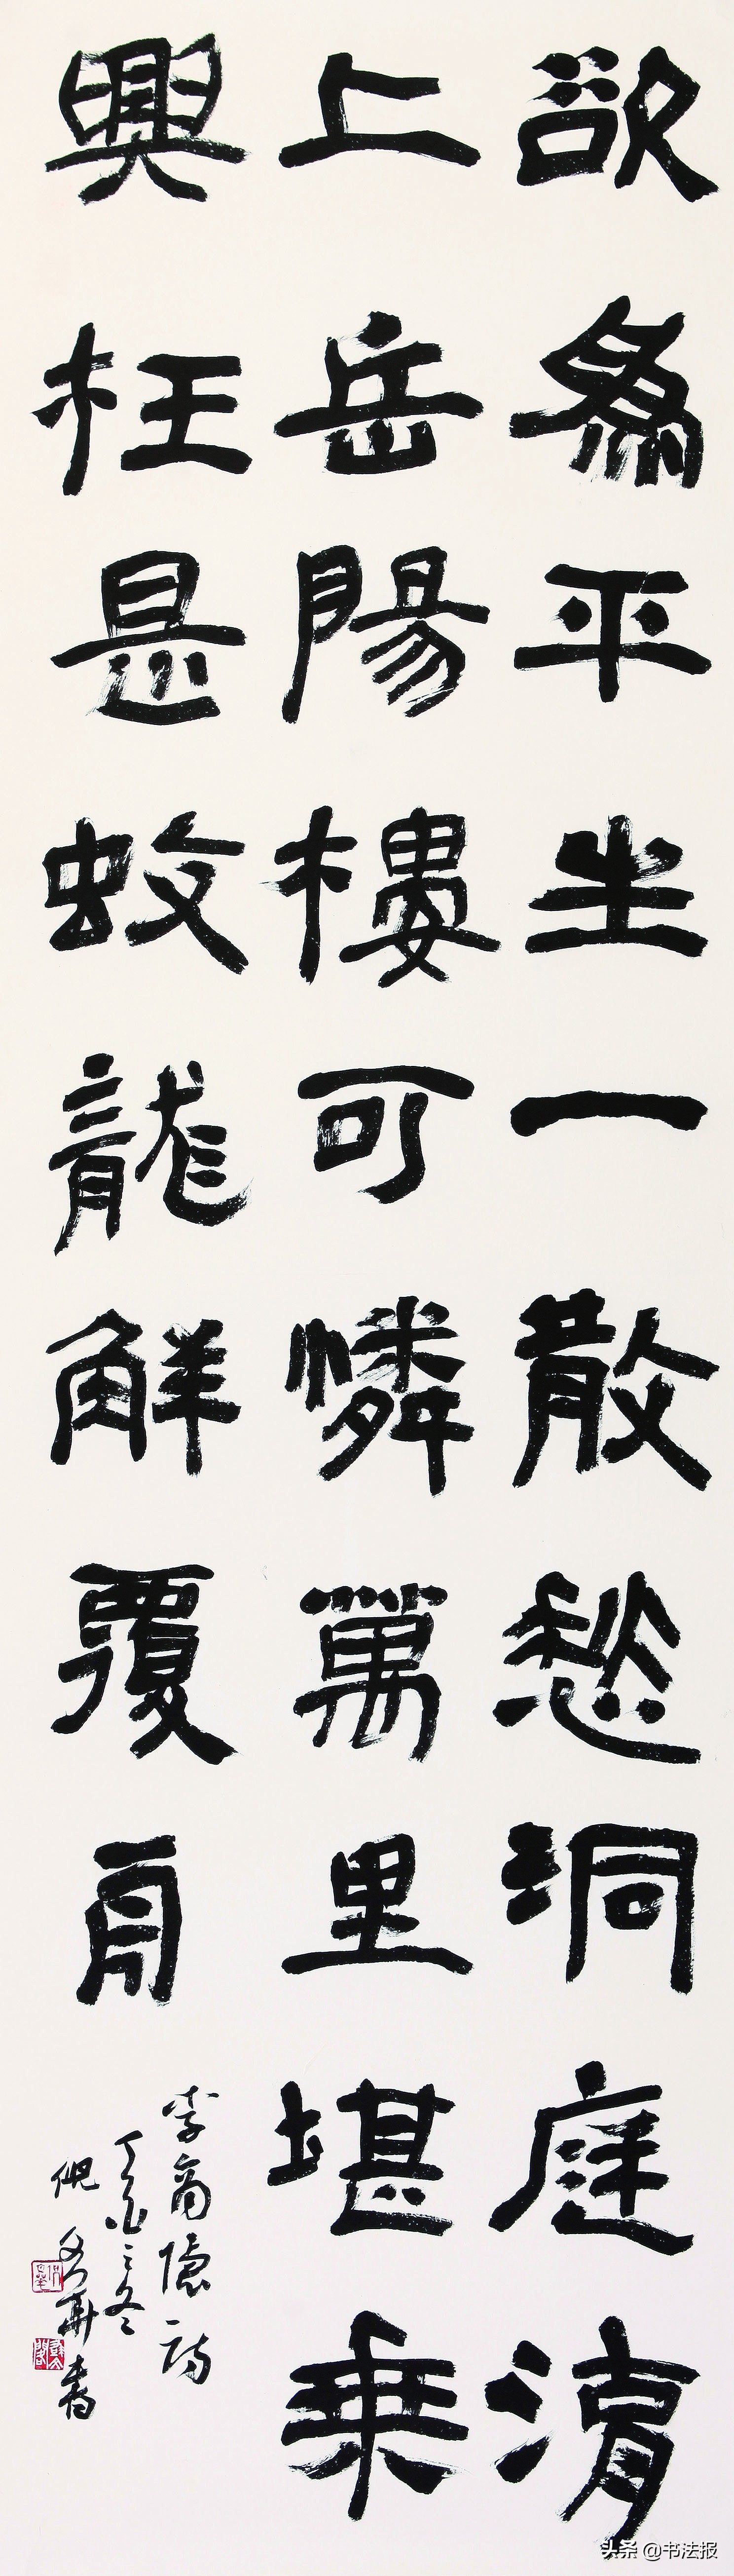 欲為平生一散愁洞庭湖
上岳陽樓可憐萬里堪乘
興枉是蚊龍解覆舟
李商隱詩
丁酉之冬
倪 書
头条 @书法报